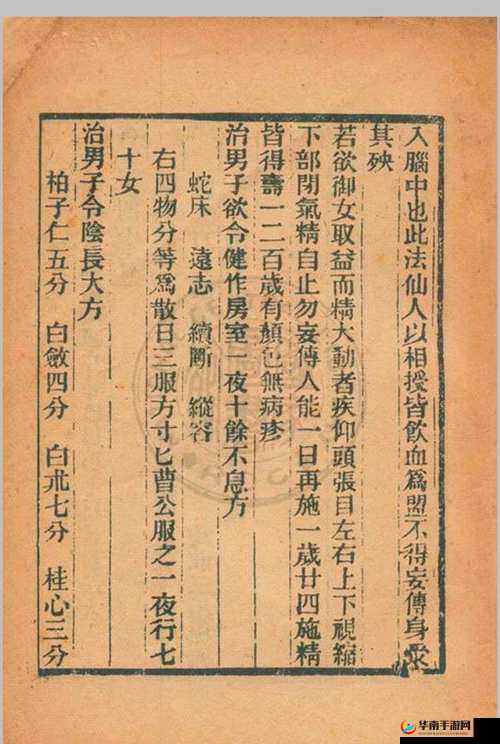 入腦中也此法仙人以相授皆飲血爲盟不得妄傳身受
其殃
若欲御女取益而精大動者疾仰頭張目左右上下視縮
下部閉氣精自止勿妄傳人能一日再施一歲廿四施精
皆得壽一二百歲有顏色無病疹
治男子欲令健作房室一夜十餘不息方
蛇床 遠志 續斷 縱容
右四物分等爲散日三服方寸匕曹公服之一夜行七
十女
治男子令陰長大方
柏子仁五分 白斂四分 白朮七分 桂心三分
华南手游网